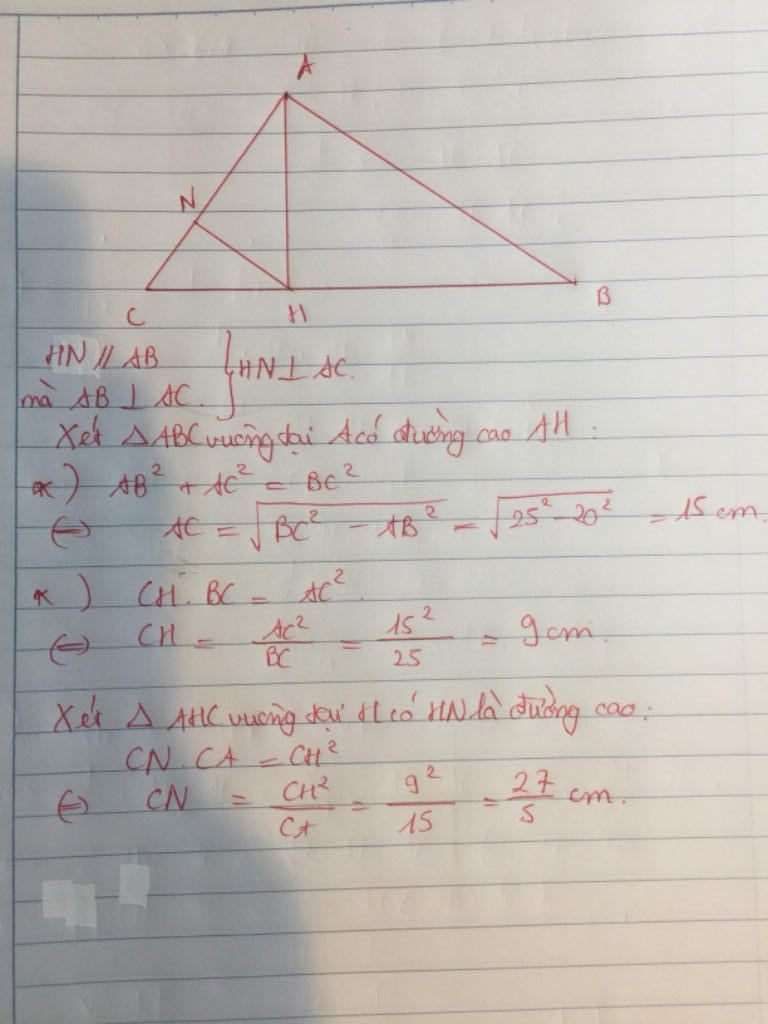 A
N
C
H
B
HN // AB
mà AB ⊥ AC. } HN ⊥ AC.
Xét △ ABC vuông tại A có đường cao AH :
*) AB² + AC² = BC²
⇔ AC = √(BC² - AB²) = √(25² - 20²) = 15 cm.
*) CH . BC = AC².
⇔ CH = AC²/BC = 15²/25 = 9 cm.
Xét △ AHC vuông tại H có HN là đường cao :
CN . CA = CH²
⇔ CN = CH²/CA = 9²/15 = 27/5 cm.